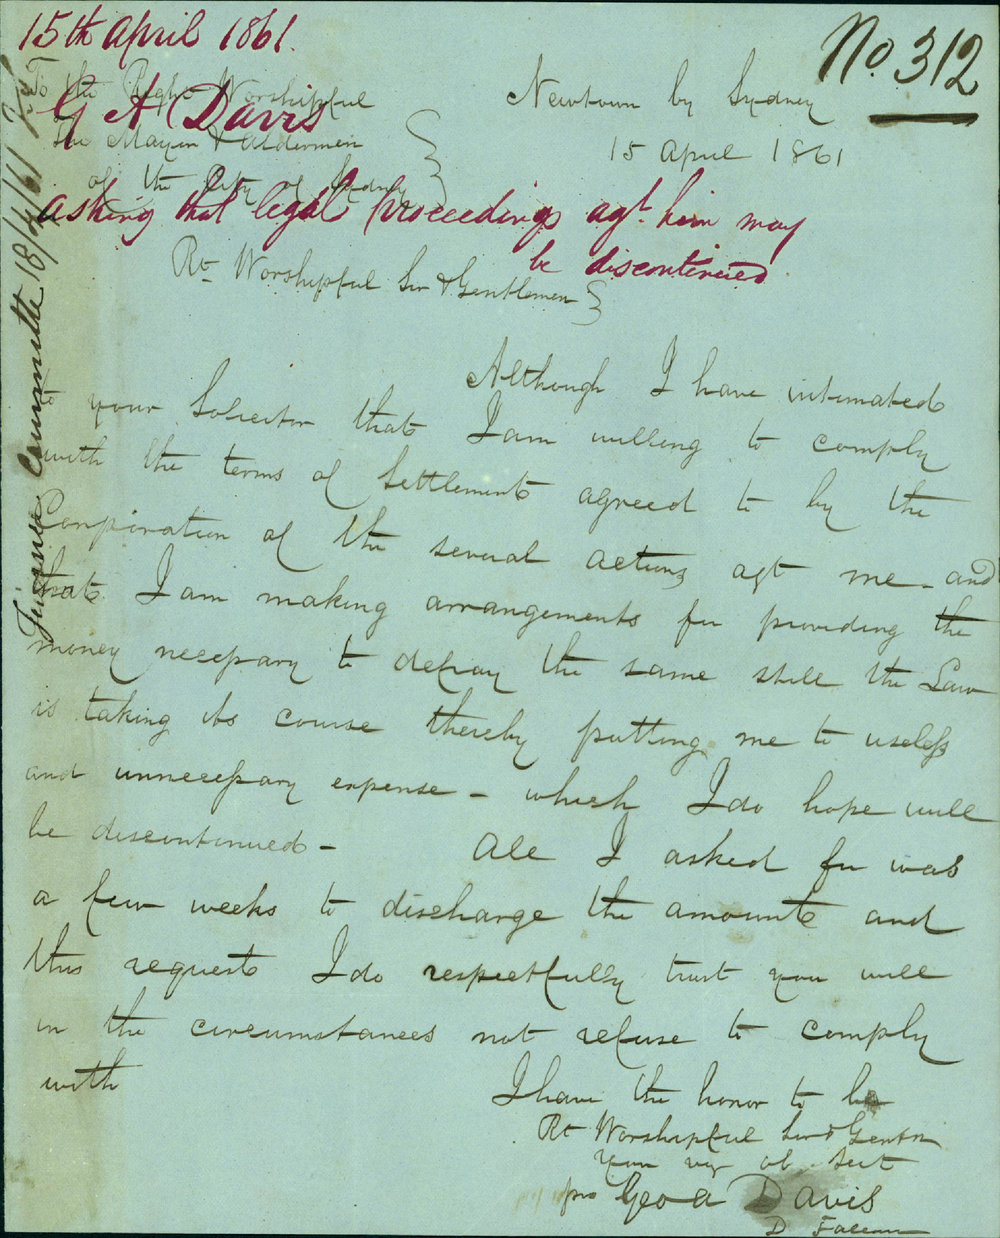 15th April 1861.
No. 312
G A Davis
asking that legal proceedings agt. him may
be discontinued
Finance Committee 18/4/61
To the Right Worshipful
The Mayor & Aldermen
of the City of Sydney
Newtown by Sydney
15 April 1861
Rt Worshipful Sir & Gentlemen
Although I have intimated
to your Solicitor that I am willing to comply
with the terms of Settlement agreed to by the
Corporation of the several actions agt me - and
that I am making arrangements for providing the
money necessary to defray the same still the Law
is taking its course thereby putting me to useless
and unnecessary expense - which I do hope will
be discontinued - All I asked for was
a few weeks to discharge the amounts and
this request I do respectfully trust you will
in the circumstances not refuse to comply
with
I have the honor to be
Rt Worshipful Sir & Gentn
Your vy ob Sert
pro Geo A Davis
D